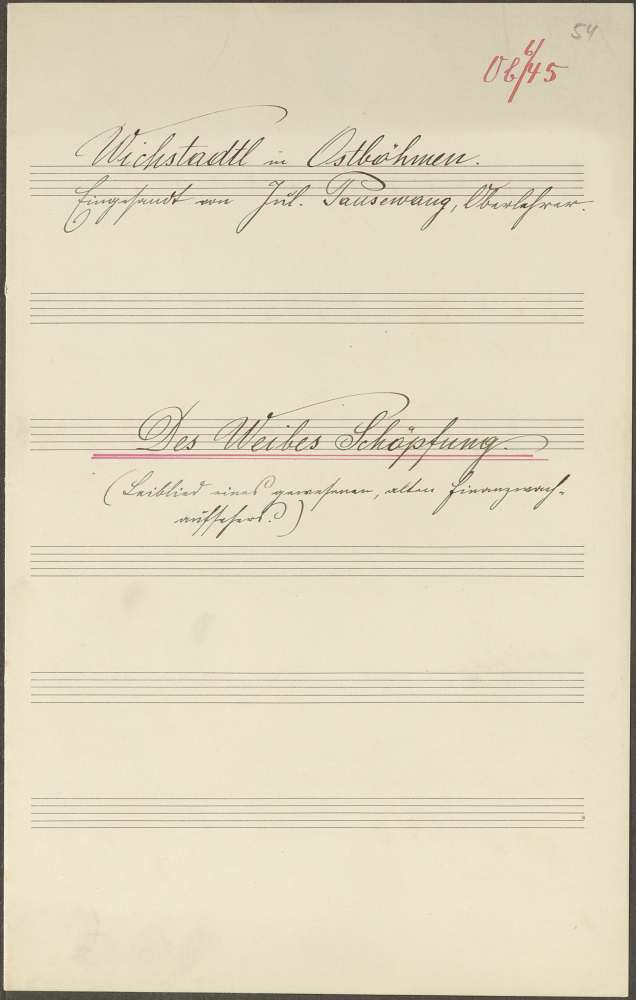 54
Ob 6/45
Wichstadtl in Ostböhmen.
Eingesandt von Jul. Pausewang, Oberlehrer.
Des Weibes Schöpfung.
(Leiblied eines gewesenen, alten Finanzwach-
aufsehers.)